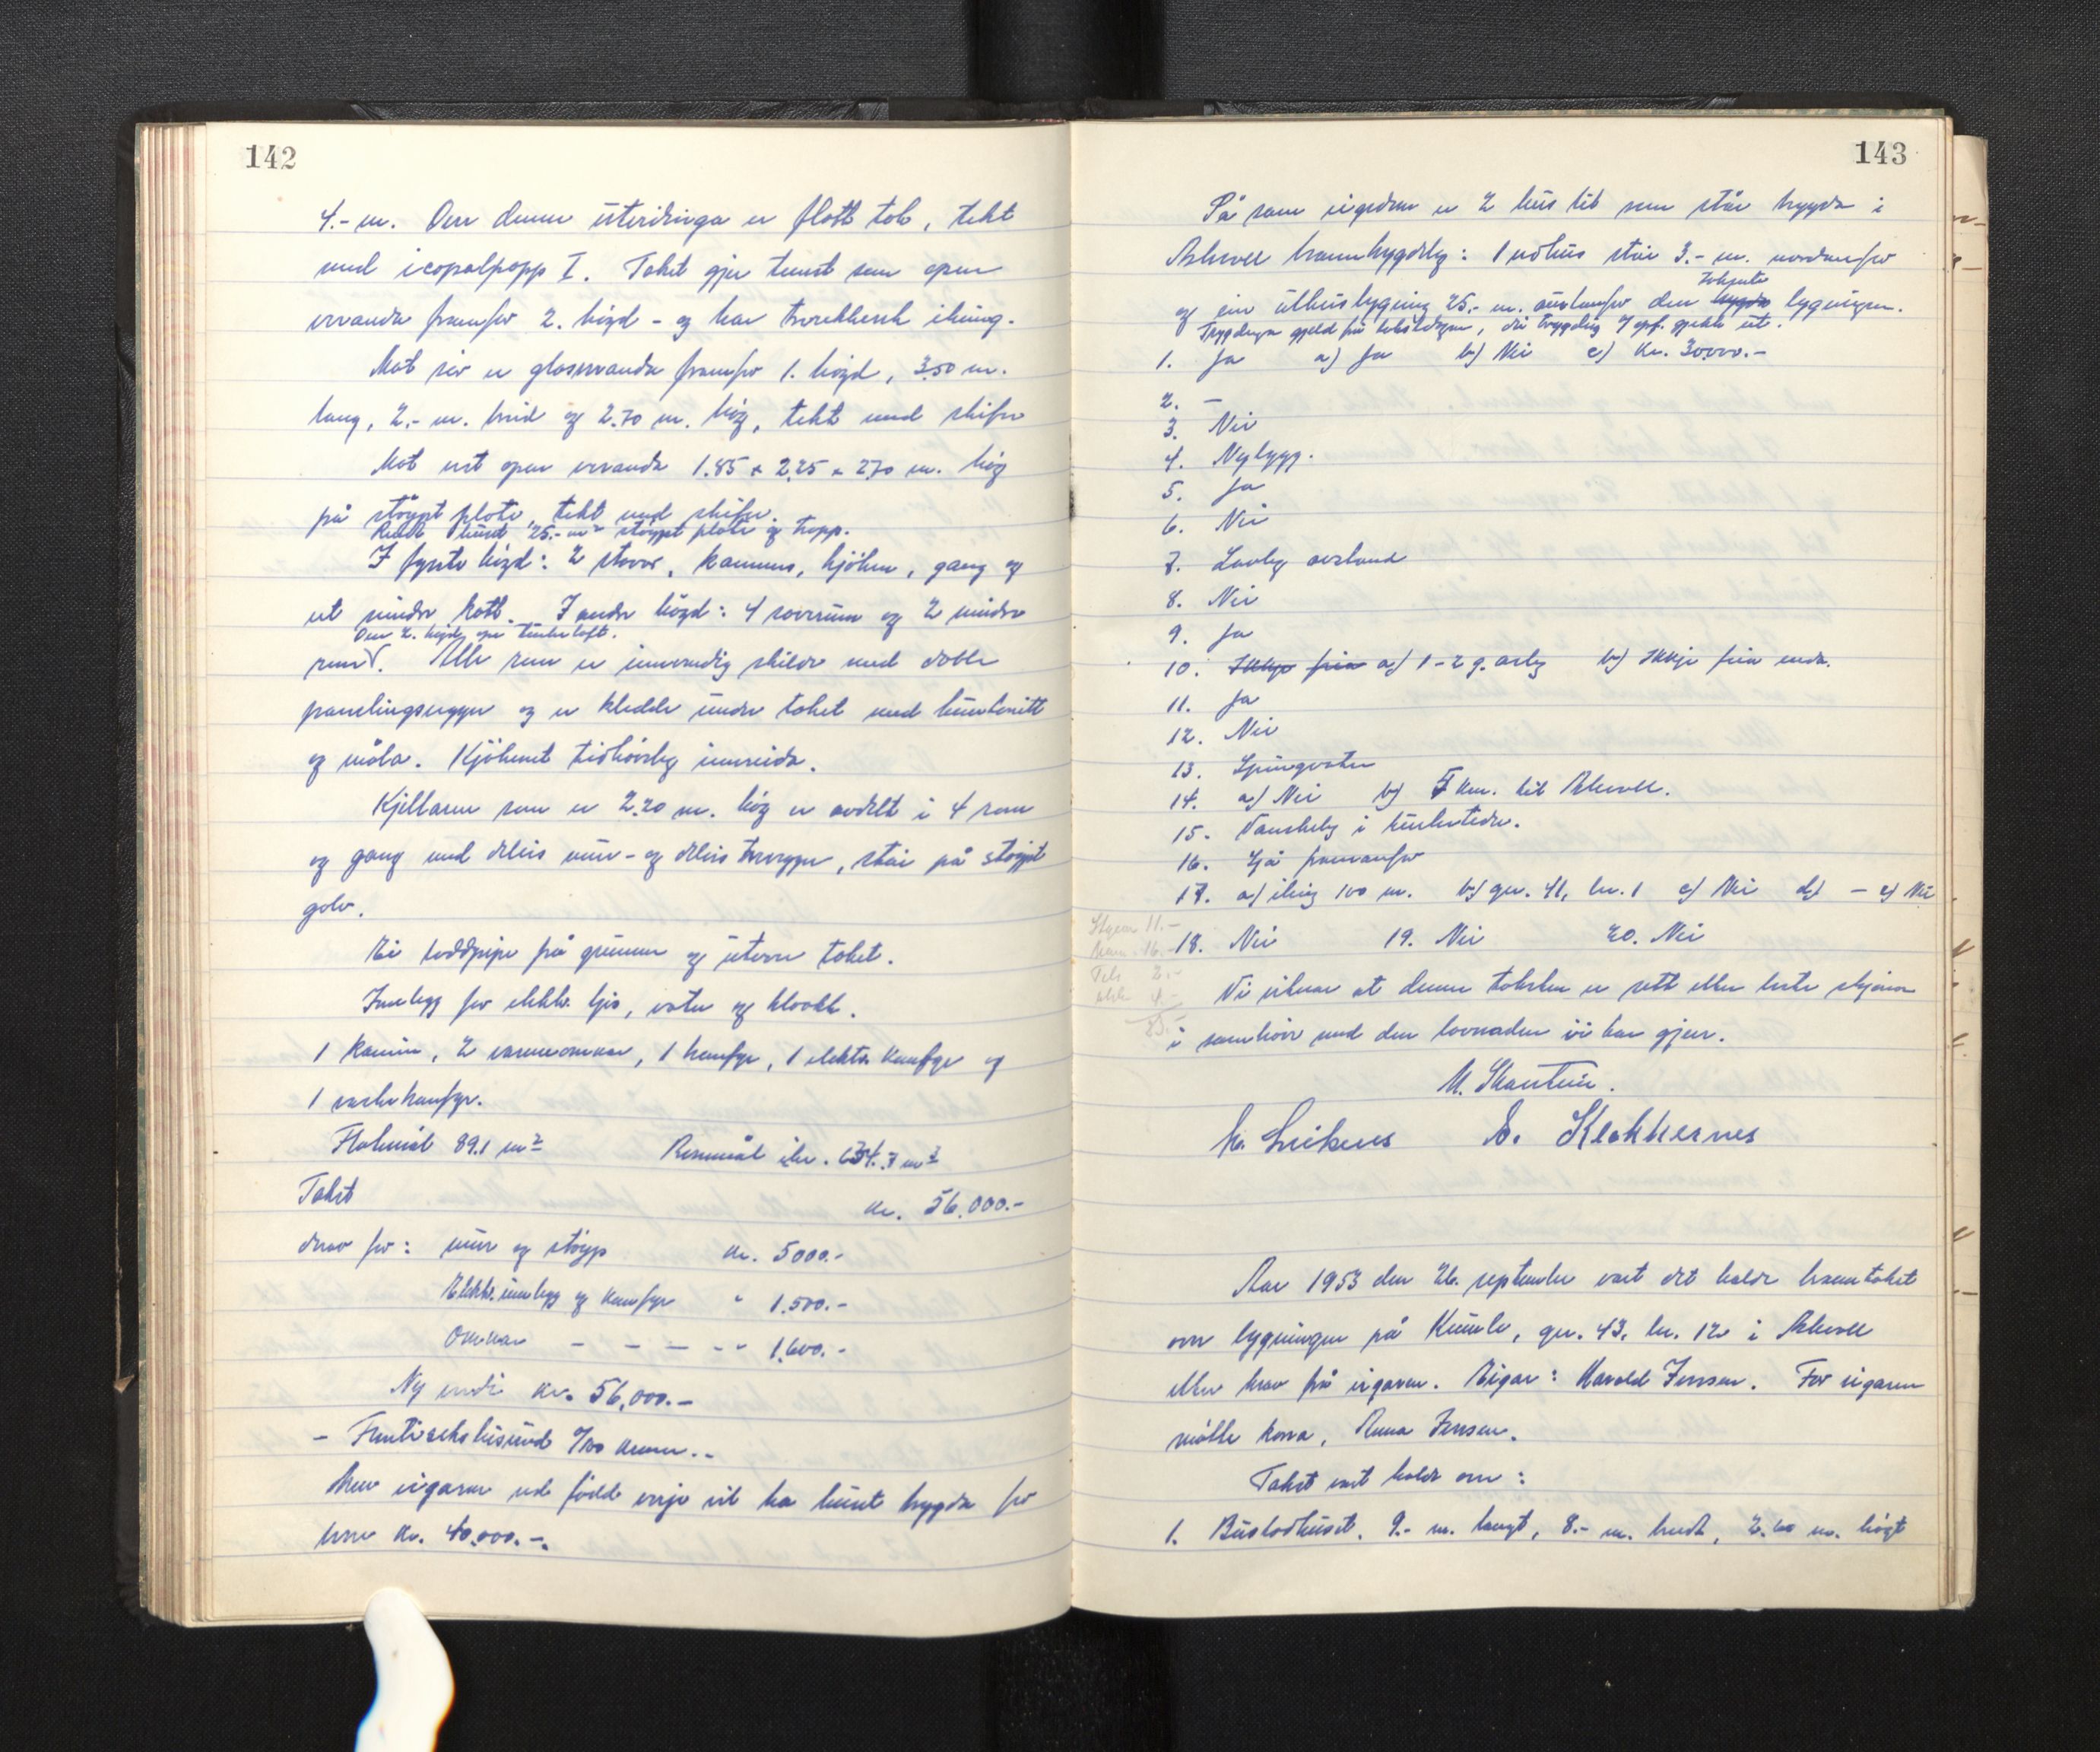 142
4.- m. Over denne utvidinga er flatt tak, tekt
med icopalpapp I. Taket gjer tenest som open
veranda framfor 2. høgd - og har trerekkverk ikring.
Mot sør er glasveranda framfor 1. høgd, 3.50 m.
lang, 2.- m. breid og 2.70 m. høg, tekt med skifer
Mot vest open veranda 1.85 x 2.25 x 2.70 m. høg
på støypt plate, tekt med skifer.
Rundt huset 25.- m² støypt plate og trapp.
I fyrste høgd: 2 stover, kammers, kjøken, gang og
eit mindre kott. I andre høgd: 4 soverum og 2 mindre
Over 2. høgd ope tømmerloft.
rom. Alle rom er innvendig skilde med doble
panelingsvegger og er kledde under taket med huntonitt
og måla. Kjøkenet tidhøveleg innreida.
Kjellaren som er 2.20 m. høg er avdelt i 4 rom
og gang med delvis mur- og delvis trevegger, står på støypt
golv.
Ei loddpipe frå grunnen og utover taket.
Innlegg for elektr. ljos, vatn og kloakk.
1 kamin, 2 varmeomnar, 1 komfyr, 1 elektr. komfyr og
1 vaskekomfyr.
Flatemål 89.1 m² Rommål ikr. 634.7 m³
Takst kr. 56.000.-
derav for: mur og støyp kr. 5000.-
Elektr. innlegg og komfyr " 1.500.-
Omnar - - - - " 1.600.-
Ny verdi kr. 56,000.-
- Femtiseks tusund 0/00 kroner.-
Men eigaren vil ha huset trygda for
berre kr. 40.000.-.
143
På same eigedom er 2 hus til som står trygda i
Askvoll branntrygdelag: 1 naust står 3.- m. nordanfor
og ein uthusbygning 25.- m. austanfor den trygda takserte bygningen.
Trygdinga gjeld frå takstdagen, då trygding i gjekk ut.
1. Ja a) Ja b) Nei c) Kr. 30000.-
2. -
3. Nei
4. Nybygg.
5. Ja
6. Nei
7. Lovleg avstand
8. Nei
9. Ja
10. Ikkje frå a) 1-2 g. årleg b) Ikkje feia enda.
11. Ja
12. Nei
13. Springvatn
14. a) Nei b) 7 km. til Askvoll.
15. Vanskeleg i turketider.
16. Sjå framanfor
17. a) ikring 100 m. b) gnr. 41, bnr. 1 c) Nei d) - e) Nei
18. Nei 19. Nei 20. Nei
Skyss 11.-
16.-
2.-
4.-
Vi vitnar at denne taksten er sett etter beste skjøn
i samhøve med den lovnaden vi har gjeve.
M. Skarstein.
E. Klokkernes
Aar 1953 den 26. september vart det halde branntakst
over bygningen på Kumle, gnr. 43, bnr. 12 i Askvoll
etter krav frå eigaren. Eigar: Harald Jensen. For eigaren
møtte kona, Anna Jensen.
Takst vart halde over:
1. Bustadhuset. 9.- m. langt, 8.- m. breidt, 2.60 m. høgt